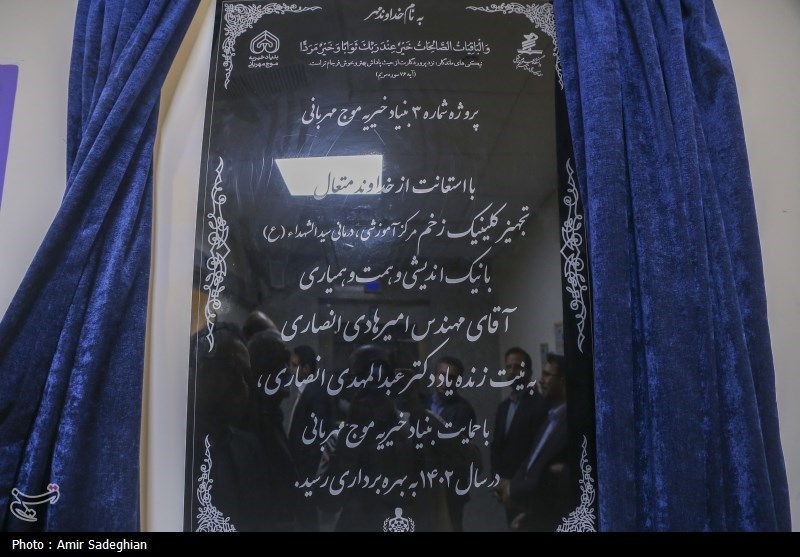 به نام خداوند مهر
وَالْبَاقِيَاتُ الصَّالِحَاتُ خَيْرٌ عِنْدَ رَبِّكَ ثَوَابًا وَخَيْرٌ مَرَدًّا
نیکی های ماندگار، نزد پروردگارت از حیث پاداش بهتر و خوش فرجام تر است.
(آیه ۷۶ سوره مریم)
بنیاد خیریه
موج مهربانی
پروژه شماره ۳ بنیاد خیریه موج مهربانی
با استعانت از خداوند متعال
تجهیز کلینیک زخم مرکز آموزشی، درمانی سیدالشهداء (ع)
با نیک اندیشی و همت و همیاری
آقای مهندس امیرهادی انصاری
به نیت زنده یاد دکتر عبدالمهدی انصاری،
با حمایت بنیاد خیریه موج مهربانی
در سال ۱۴۰۲ به بهره برداری رسید.
تسنیم
Photo : Amir Sadeghian